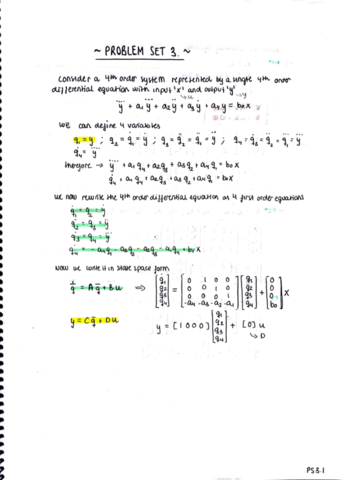 ~ PROBLEM SET 3. ~
consider a 4th order system represented by a single 4th order
differential equation with input 'x' and output 'y'
y⃜ + a₁y⃛ + a₂ÿ + a₃ẏ + a₄y = b₀x
we can define 4 variables
q₁ = y ; q₂ = q̇₁ = ẏ ; q₃ = q̇₂ = q̈₁ = ÿ ; q₄ = q̇₃ = q̈₂ = q⃛₁ = y⃛
q̇₄ = y⃜
therefore → y⃜ + a₁q₄ + a₂q₃ + a₃q₂ + a₄q₁ = b₀x
q̇₄ + a₁q₄ + a₂q₃ + a₃q₂ + a₄q₁ = b₀x
we now rewrite the 4th order differential equation as 4 first order equations
q̇₁ = q₂ = ẏ
q̇₂ = q₃ = ÿ
q̇₃ = q₄ = y⃛
q̇₄ = -a₁q₄ - a₂q₃ - a₃q₂ - a₄q₁ + b₀x
Now we write it in state space form
q̇ = Aq + Bu ⇒ [q₁ q₂ q₃ q₄] = [0 1 0 0 / 0 0 1 0 / 0 0 0 1 / -a₄ -a₃ -a₂ -a₁] [q₁ q₂ q₃ q₄] + [0 0 0 b₀] x
y = Cq + Du
y = [1 0 0 0] [q₁ q₂ q₃ q₄] + [0] u
↳ D
PS3.1